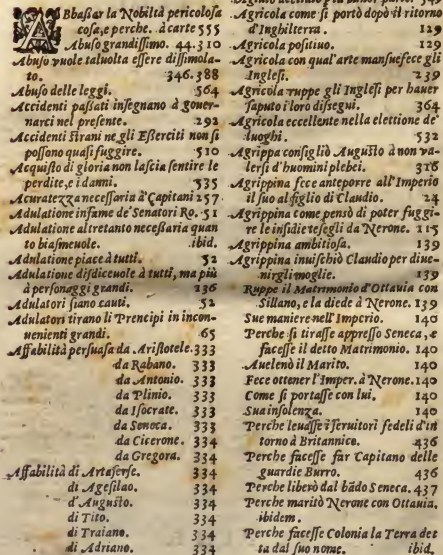 ABbaſſar la Nobiltà pericoloſa
coſa, e perche. à carte 555
Abuſo grandiſſimo. 44.310
Abuſo vuole taluolta eſſere diſſimola-
to. 346.388
Abuſo delle leggi. 564
Accidenti paſſati inſegnano à gouer-
narci nel preſente. 292
Accidenti ſtrani ne gli Eſſerciti non ſi
poſſono quaſi fuggire. 510
Acquiſto di gloria non laſcia ſentire le
perdite, e i danni. 535
Acuratezza neceſſaria à Capitani 257
Adulatione infame de' Senatori Ro. 51
Adulatione altretanto neceſſaria quan
to biaſmeuole. ibid.
Adulatione piace à tutti. 52
Adulatione diſdiceuole à tutti, ma più
à perſonaggi grandi. 236
Adulatori ſiano cauti. 52
Adulatori tirano li Prencipi in incon-
uenienti grandi. 65
Affabilità perſuaſa da Ariſtotele. 333
da Rabano. 333
da Antonio. 333
da Plinio. 333
da Iſocrate. 333
da Seneca. 333
da Cicerone. 334
da Gregora. 334
Affabilità di Artaſerſe. 334
di Ageſilao. 334
d'Auguſto. 334
di Tito. 334
di Traiano. 334
di Adriano. 334
Agricola come ſi portò dopò il ritorno
d'Inghilterra. 129
Agricola poſitiuo. 129
Agricola con qual'arte manſuefece gli
Ingleſi. 239
Agricola ruppe gli Ingleſi per hauer
ſaputo i loro diſſegui. 364
Agricola eccellente nella elettione de'
luoghi. 532
Agrippa conſigliò Auguſto à non va-
lerſi d'huomini plebei. 316
Agrippina fece anteporre all'Imperio
il ſuo al figlio di Claudio. 24
Agrippina come pensò di poter fuggi-
re le inſidie teſegli da Nerone. 115
Agrippina ambitioſa. 139
Agrippina inuiſchiò Claudio per diue-
nirgli moglie. 139
Ruppe il Matrimonio d'Ottauia con
Sillano, e la diede à Nerone. 139
Sue maniere nell'Imperio. 140
Perche ſi tiraſſe appreſſo Seneca, e
faceſſe il detto Matrimonio. 140
Auelenò il Marito. 140
Fece ottener l'Imper. à Nerone. 140
Come ſi portaſſe con lui. 140
Sua inſolenza. 140
Perche leuaſſe i ſeruitori fedeli d'in
torno à Britannico. 436
Perche faceſſe far Capitano delle
guardie Burro. 436
Perche liberò dal bãdo Seneca. 437
Perche maritò Nerone con Ottauia.
ibidem.
Perche faceſſe Colonia la Terra det
ta dal ſuo nome. ibid.